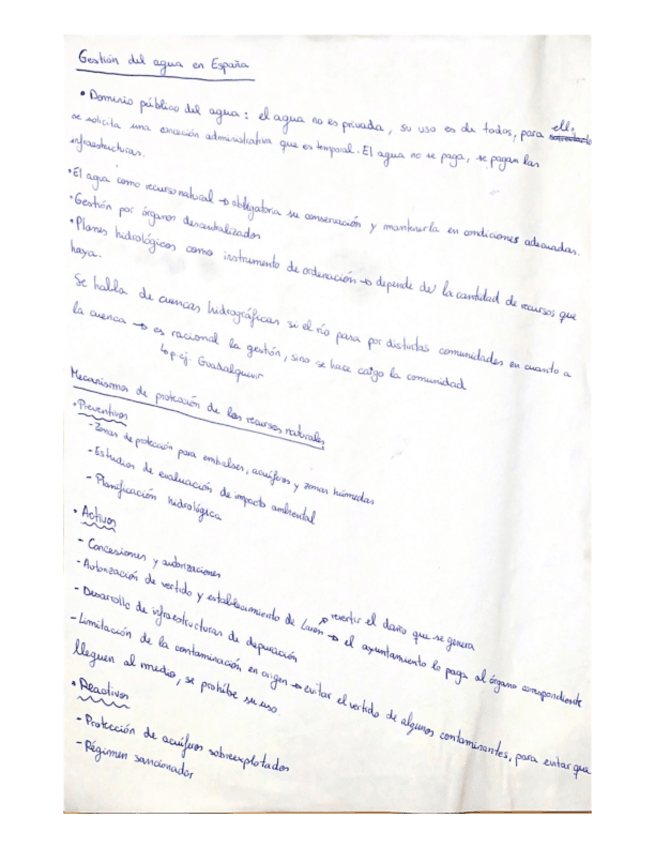 Gestión del agua en España
• Dominio público del agua: el agua no es privada, su uso es de todos, para ello
se solicita una concesión administrativa que es temporal. El agua no se paga, se pagan las
infraestructuras.
• El agua como recurso natural → obligatoria su conservación y mantenerla en condiciones adecuadas.
• Gestión por órganos descentralizados
• Planes hidrológicos como instrumento de ordenación → depende de la cantidad de recursos que
haya.
Se habla de cuencas hidrográficas si el río pasa por distintas comunidades en cuanto a
la cuenca → es racional la gestión, sino se hace cargo la comunidad
↳ p.ej. Guadalquivir
Mecanismos de protección de los recursos naturales
• Preventivos
- Zonas de protección para embalses, acuíferos y zonas húmedas
- Estudios de evaluación de impacto ambiental
- Planificación hidrológica
• Activos
- Concesiones y autorizaciones
- Autorización de vertido y establecimiento de → revertir el daño que se genera
→ el ayuntamiento lo paga al órgano correspondiente
- Desarrollo de infraestructuras de depuración
- Limitación de la contaminación en origen → evitar el vertido de algunos contaminantes, para evitar que
lleguen al medio, se prohíbe su uso.
• Reactivos
- Protección de acuíferos sobreexplotados
- Régimen sancionador